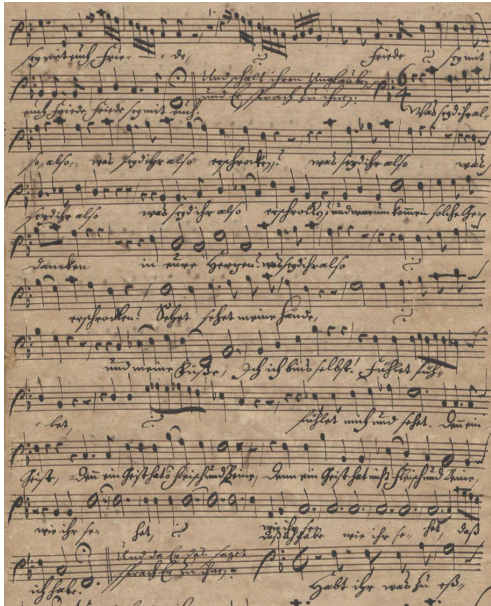 sey mit euch Frie- de, Friede sey mit
euch Friede Friede sey mit euch. Und schalt ihren Unglauben
und Er sprach zu ihn: Was seyd ihr al-
so, also, was seyd ihr also erschrocken? was seyd ihr also was
seyd ihr also was seyd ihr also erschrocken, und warum komen solche Ge-
dancken in eure Hertzen? was seyd ihr also
erschrocken? Sehet sehet meine Hände,
und meine Füße, Ich ich bins selbst! fühlet füh-
let, fühlet mich und sehet. Den ein
Geist, Den ein Geist hat Fleisch und Beine, Denn ein Geist hat nicht Fleisch und Beine,
wie ihr se- het, wie ihr se- het, daß
ich habe. Und da Er das saget
sprach Er zu ihn: Habt ihr was zu eß-